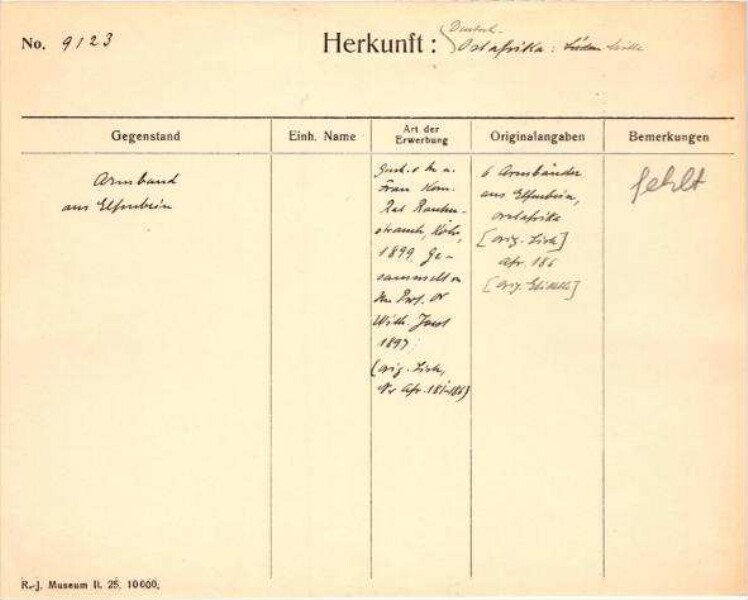 No. 9123
Herkunft: Deutsch-
Ostafrika:
Gegenstand
Einh. Name
Art der
Erwerbung
Originalangaben
Bemerkungen
Armband
aus Elfenbein
Frau Kom.
Rat Rauten-
strauch, Köln,
1899, Ge-
sammelt v
Prof. Dr
Wilh. Joest
1897;
(orig. Liste,
Nr Afr. 181-186)
6 Armbänder
aus Elfenbein,
Ostafrika
[orig. Liste]
Afr. 186
[orig. Etikette]
fehlt
R.-J. Museum II. 25. 10000.